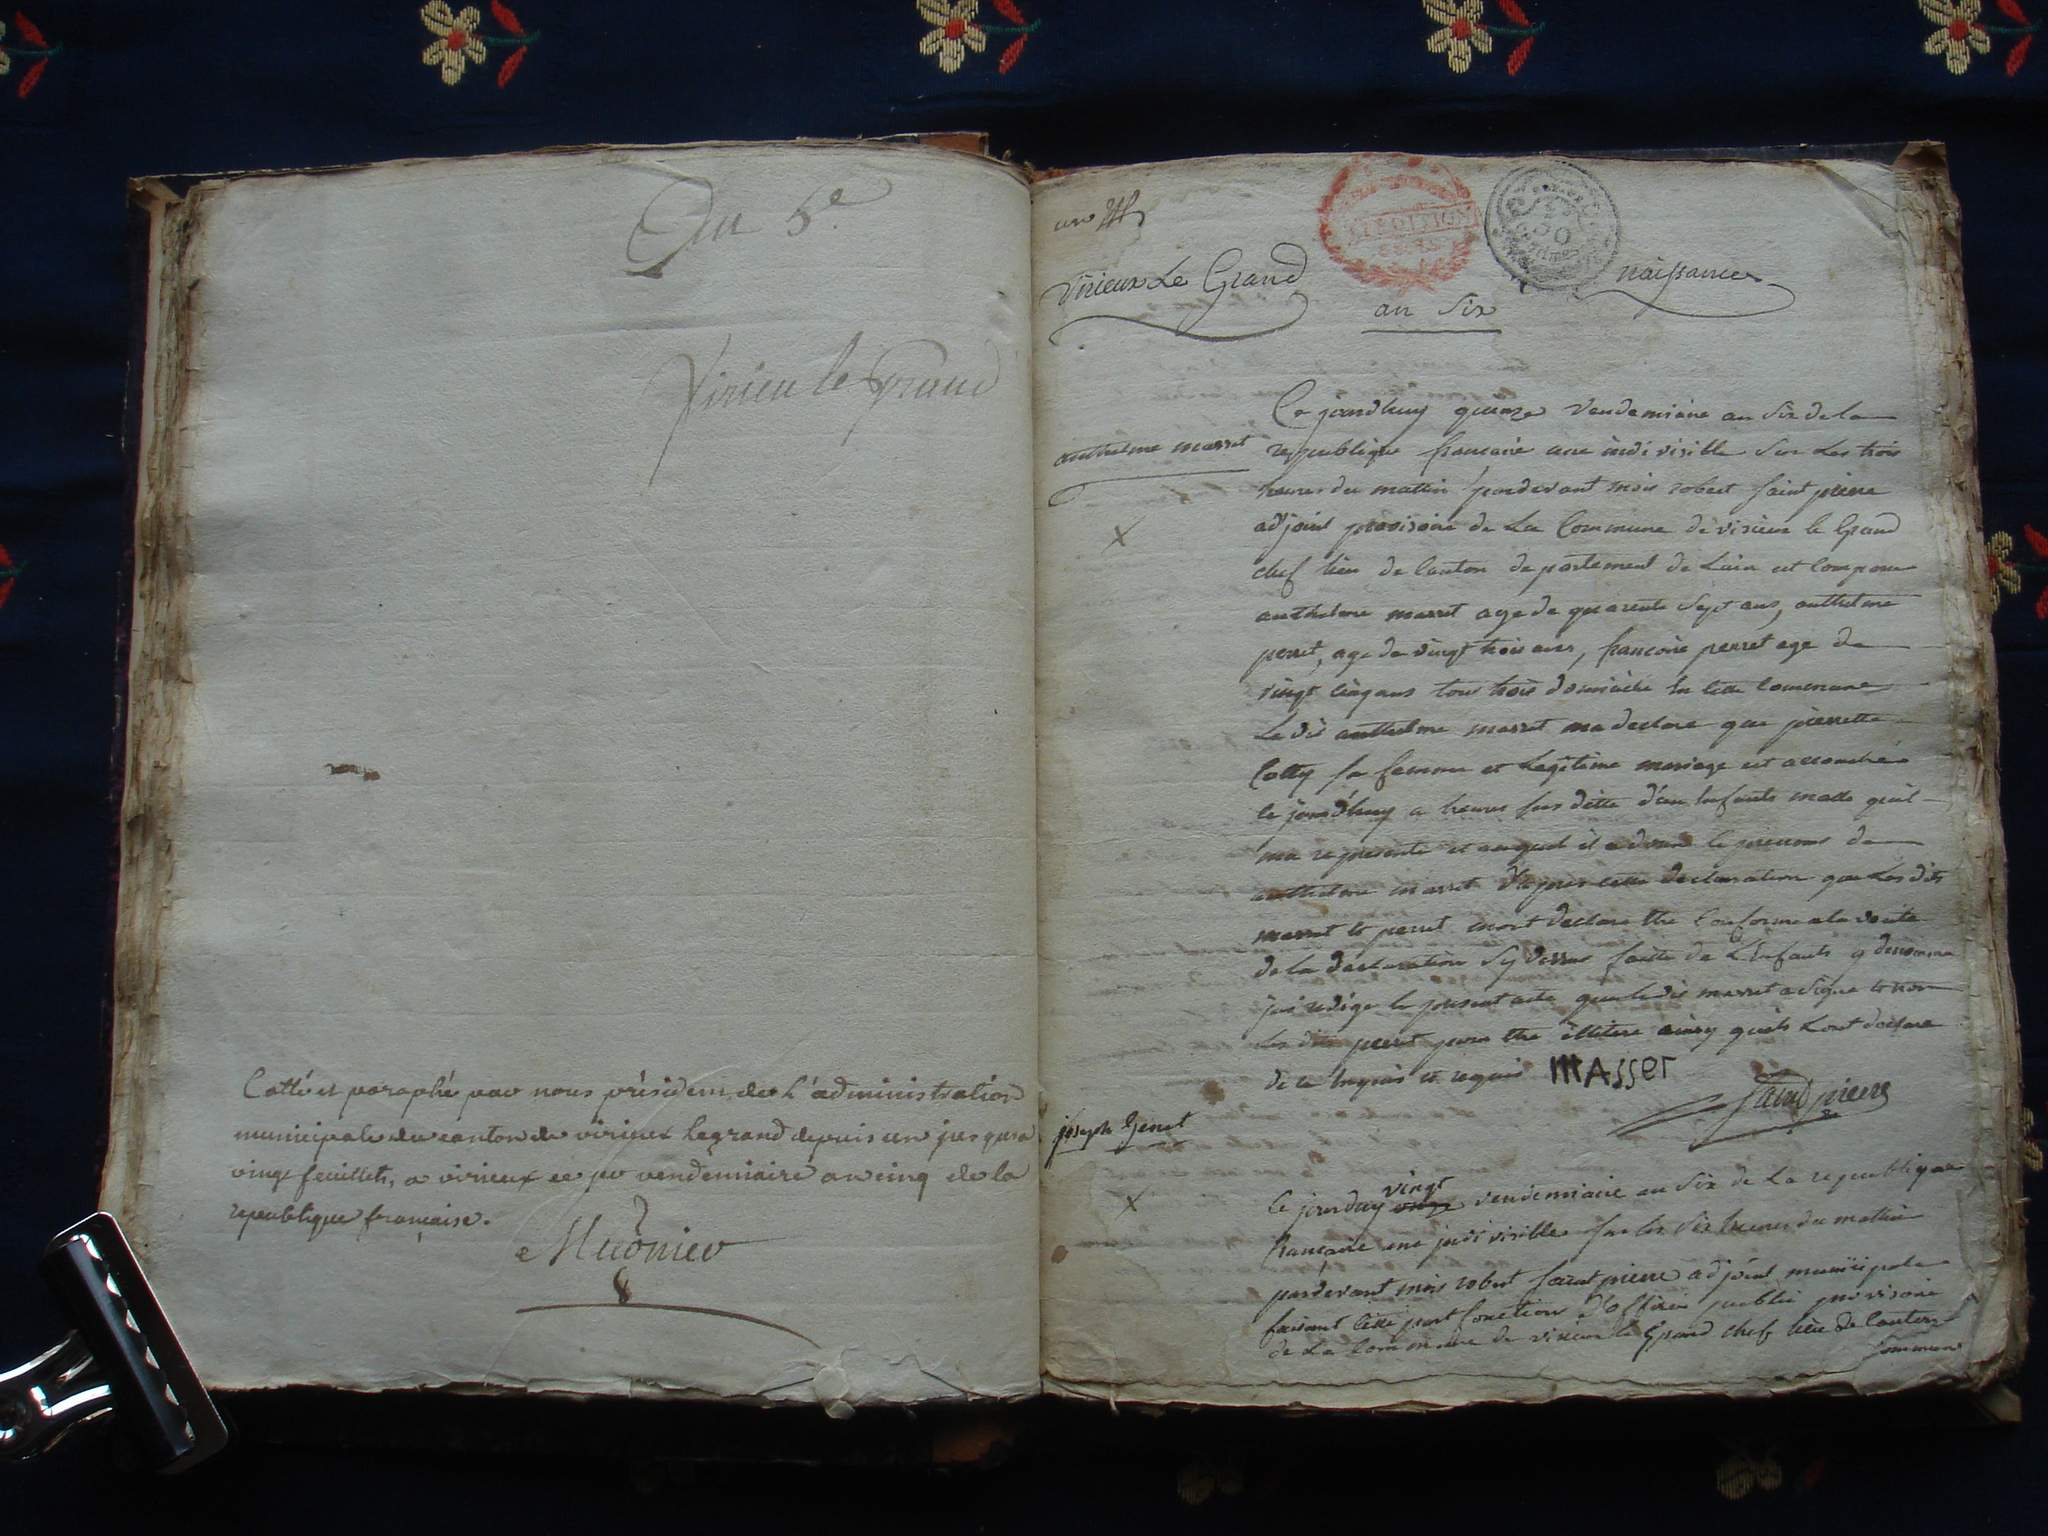 An 5e
Virieu le Grand
Cotté et paraphé par nous président de L'administration
municipale du canton de virieux Legrand depuis un jusqua
vingt feuillets, a virieux ce pr vendemiaire an cinq de la
republique française.
Meunier
un
EXPEDITION
50
Virieux Le Grand
naissances
an Six
anthelme masset
Ce jourdhuy quinze Vendemiaire an Six de la
republique francaise une indivisible Sur Les trois
heures du mattin pardevant mois robert Saint pierre
adjoint provisoire de La Commune de virieux le Grand
chef lieu de Canton departement de Lain est Comparu
anthelme masset age de quarente Sept ans, anthelme
perret, age de vingt trois ans, francois perret age de
vingt Cinq ans tous trois domicilie En Cette Commune
Le dit anthelme masset ma declare que pierrette
Cotty sa femme et Legitime mariage est accouchée
ce jourd'huy a heures sus ditte d'un Enfants malle quil
ma represente et auquel il a donné le prenoms de
anthelme masset d'apres cette declaration que Les dits
masset et perret mont declare Etre Conforme a la verite
de la declaration Sy dessus faitte de L'Enfants denomme
jai redige le present acte que le dit masset a Signe et non
Les dits perret pour Etre illitere ainsy quils Lont declare
de ce Enquis et requis MASSET
Saint pierre
joseph Genet
Ce jourduy vingt vendemiaire an Six de La republique
francaise une jndivisible Sur les Six heures du mattin
pardevant mois robert Saint pierre adjoint municipale
faisant Cette part fonction d'officier public provisoire
de La Commune de virieux le Grand chef lieu de Canton
Commune